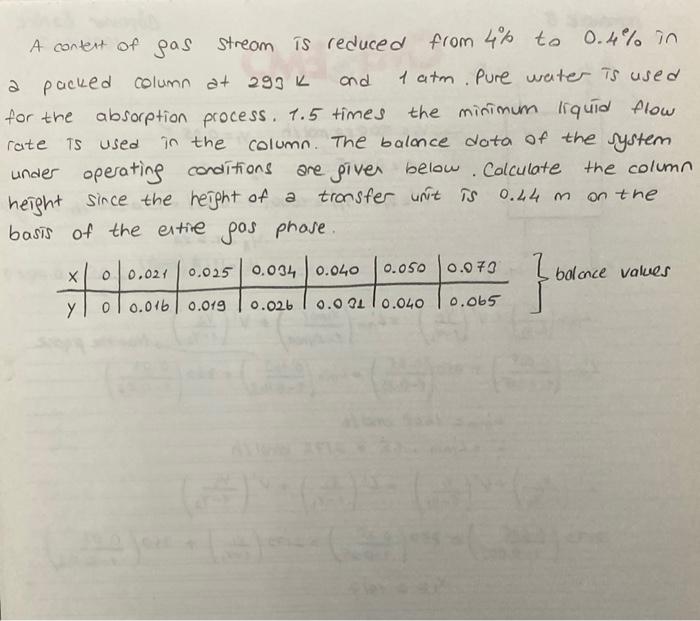 A content of gas stream is reduced from 4% to 0.4% in
a packed column at 293 K and 1 atm. Pure water is used
for the absorption process. 1.5 times the minimum liquid flow
rate is used in the column. The balance data of the system
under operating conditions are given below. Calculate the column
height since the height of a transfer unit is 0.44 m on the
basis of the entire gas phase.
x 0 0.021 0.025 0.034 0.040 0.050 0.073 } balance values
y 0 0.016 0.019 0.026 0.031 0.040 0.065